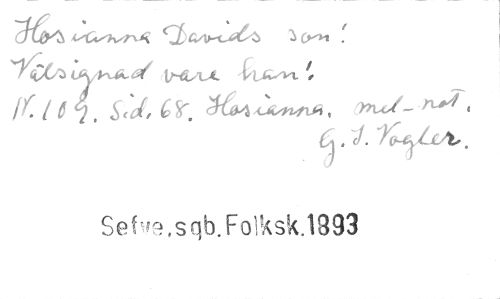 Hosianna Davids son!
Välsignad vare han!
N. 109. Sid. 68. Hosianna. mel-not.
G. J. Vogler.
Sefve.sgb.Folksk.1893